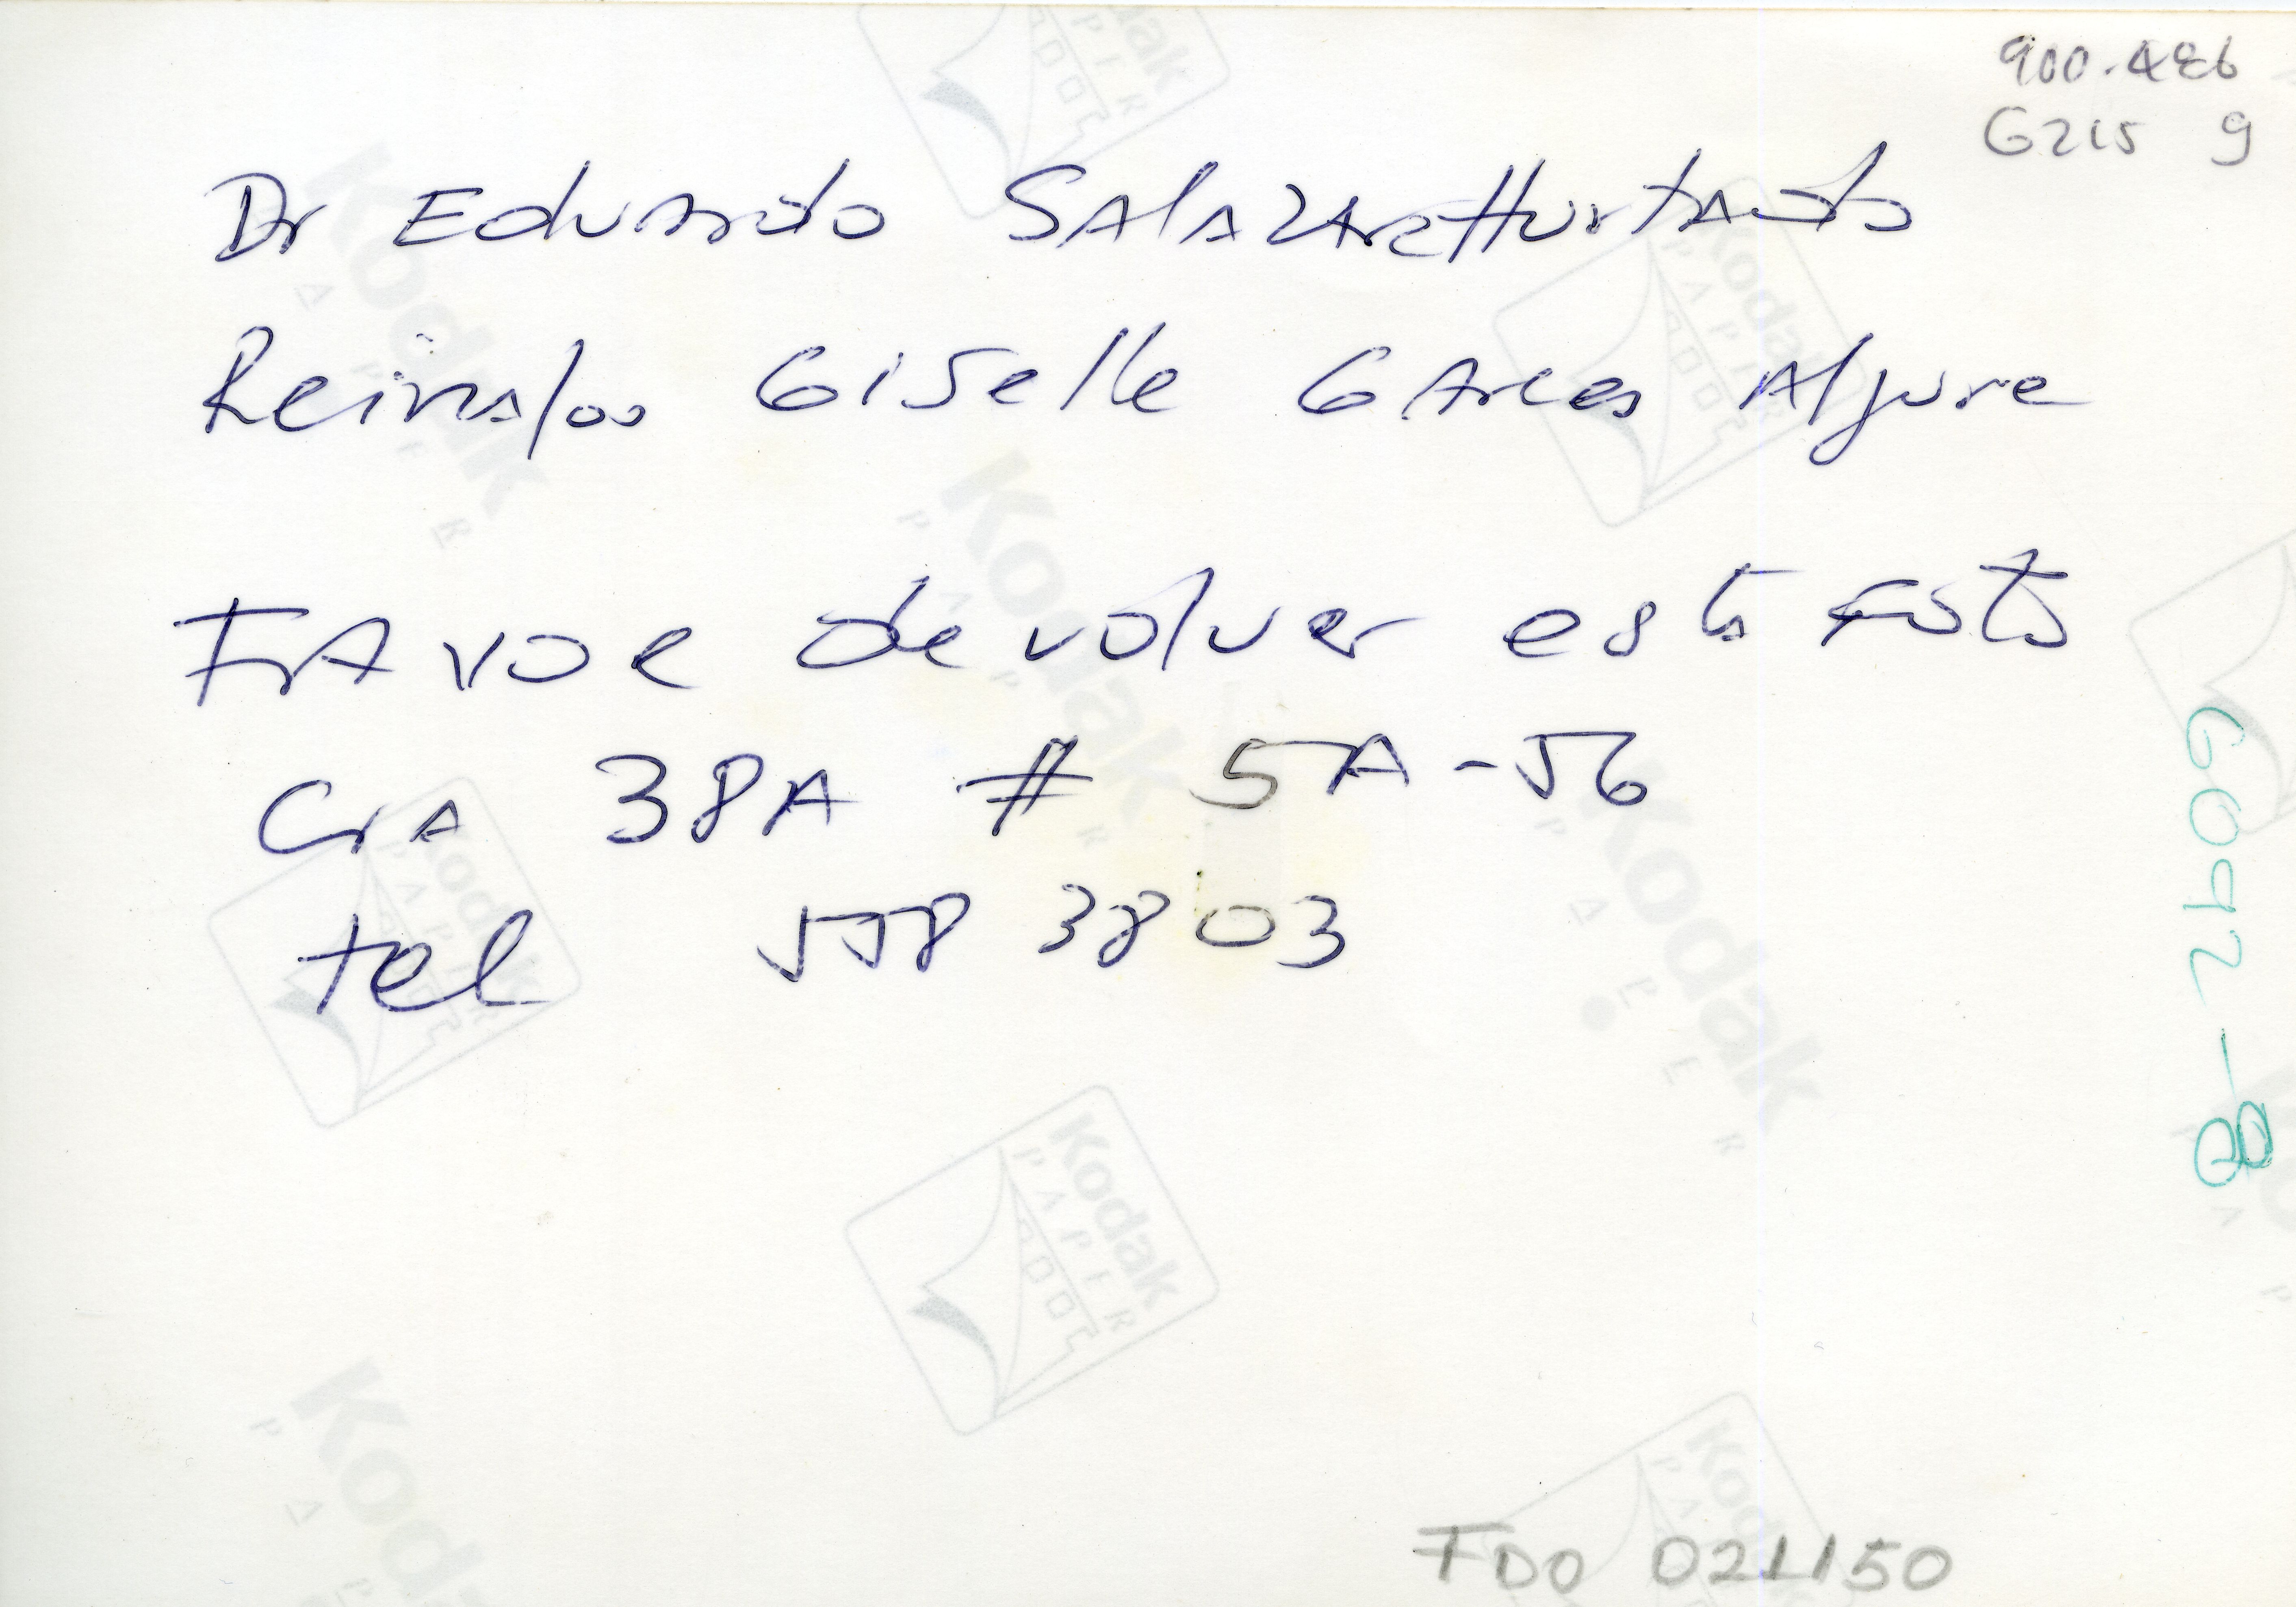 900.486
G215 g
Dr Eduardo SALAZAR Hurtado
Reinaldo Giselle GARces Aljure
FAvor devolver esta foto
CrA 38A # 5A-56
tel 558 3803
6092-8
FDO 021150
Kodak
PAPER